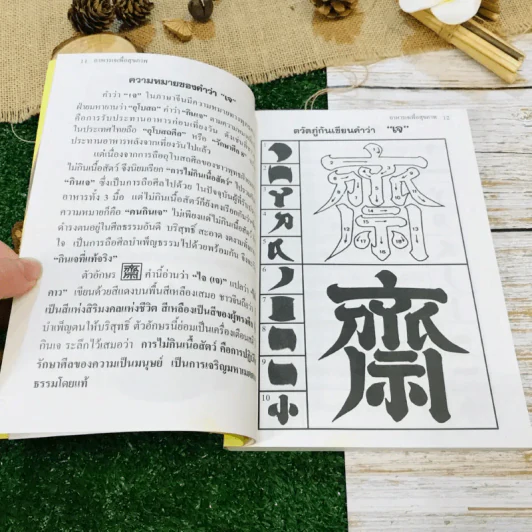 12 อาหารเจเพื่อสุขภาพ
ความหมายของคำว่า "เจ"
คำว่า "เจ" ในภาษาจีนมีความหมายทาง
ฝ่ายมหายานว่า "อุโบสถ" คำว่า "กินเจ" ตามความ
คือการรับประทานอาหารก่อนเที่ยงวัน
ในประเทศไทยถือ "อุโบสถศีล" หรือ "รักษาศีล
ประทานอาหารหลังจากเที่ยงวันไปแล้ว
แต่เนื่องจากการถืออุโบสถศีลของชาวพุทธ
ไม่กินเนื้อสัตว์ จึงนิยมเรียก "การไม่กินเนื้อสัตว์" ไป
"กินเจ" ซึ่งเป็นการถือศีลไปด้วย ในปัจจุบันผู้
อาหารทั้ง 3 มื้อ แต่ไม่กินเนื้อสัตว์ก็ยังคงเรียกกัน
ความหมายก็คือ "คนกินเจ" ไม่เพียงแต่ไม่กินเนื้อ
ดำรงตนอยู่ในศีลธรรมอันดี บริสุทธิ์ สะอาด
ใจ เป็นการถือศีลบำเพ็ญธรรมไปด้วยพร้อมกัน
"กินเจที่แท้จริง"
ตัวอักษร 齋 คำนี้อ่านว่า "ไจ (เจ)" แปลว่า
คาว" เขียนด้วยสีแดงบนพื้นสีเหลืองเสมอ ชาวจีนถือว่า
เป็นสีแห่งสิริมงคลแห่งชีวิต สีเหลืองเป็นสีของผู้ทรง
บำเพ็ญตนให้บริสุทธิ์ ตัวอักษรนี้ย่อมเป็นเครื่องเตือน
กินเจ ระลึกไว้เสมอว่า การไม่กินเนื้อสัตว์ คือการ
รักษาศีลของความเป็นมนุษย์ เป็นการเจริญมหาเมตตา
ธรรมโดยแท้
อาหารเจเพื่อสุขภาพ 13
ตวัดภู่กันเขียนคำว่า "เจ"
齋
齋
6
7
8
9
10